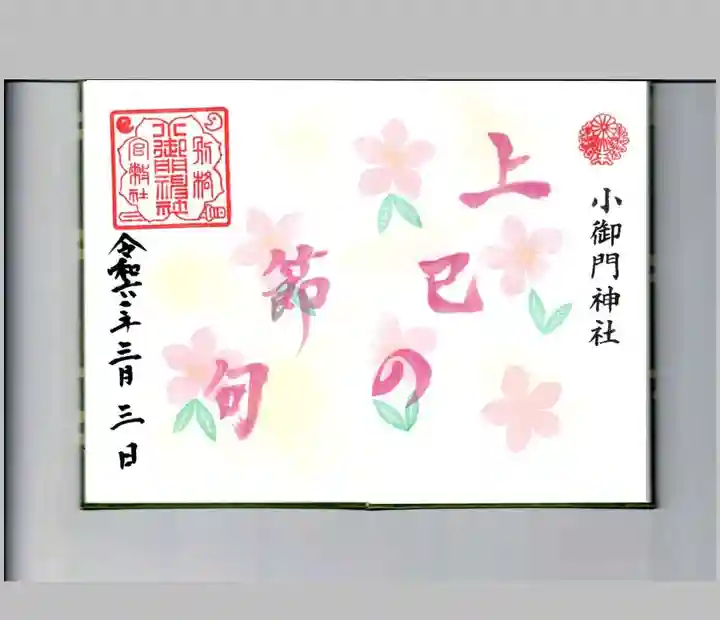 小御門神社
上巳の節句
別格
小御門神社
官幣社
令和六年三月三日